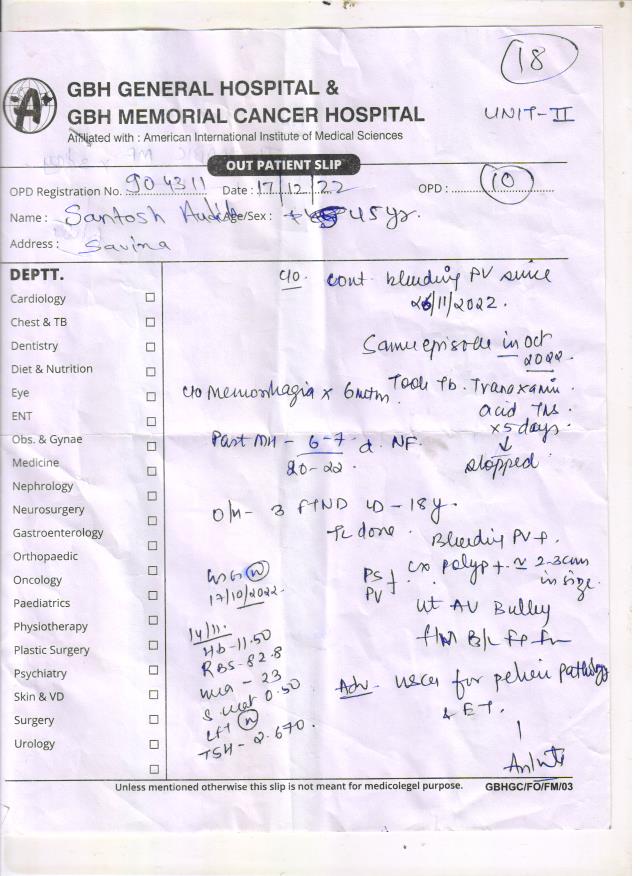 18
GBH GENERAL HOSPITAL &
GBH MEMORIAL CANCER HOSPITAL
UNIT-II
Affiliated with : American International Institute of Medical Sciences
OUT PATIENT SLIP
OPD Registration No. 904311 Date : 17/12/22 OPD : 10
Name : Santosh Age/Sex : 45yr.
Address : Savina
DEPTT.
c/o. cont. bleeding PV since
26/11/2022.
Cardiology
Chest & TB
Same episode in Oct
2022.
Dentistry
Diet & Nutrition
c/o Menorrhagia x 6mth Took Tb. Tranexamic
acid TDS
x5 days.
↓
stopped
Eye
ENT
Obs. & Gynae
Past MH - 6-7 d NF.
20-22.
Medicine
Nephrology
Neurosurgery
O/H - 3 FTND LD - 18y.
TL done.
Gastroenterology
Bleeding PV+.
Orthopaedic
PS
PV
+ cx polyp +. ≃ 2-3cm
in size.
Oncology
17/10/2022.
Paediatrics
ut AV Bulky
Physiotherapy
14/11.
Hb-11.50
Plastic Surgery
RBS-82.8
Psychiatry
- 23
Adv- for pelvic pathology
& ET.
Skin & VD
0.50
Surgery
LFT N
Urology
TSH - 2.670.
Unless mentioned otherwise this slip is not meant for medicolegel purpose. GBHGC/FO/FM/03